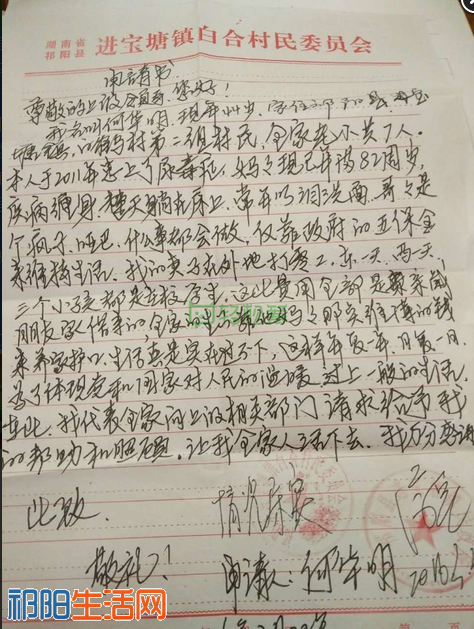 湖南省
祁阳县 进宝塘镇白合村民委员会
申请书
尊敬的上级领导,您好!
我名叫何华明,现年 岁,家住祁阳县进宝
塘镇,白合村第二组村民,全家老小共7人。
本人于2011年患上了尿毒症,妈妈现已年满82周岁,
疾病缠身,整天躺在床上,常年以泪洗面,哥哥是
个疯子,哑巴,什么事都会做,仅靠政府的五保金
来维持生活,我的妻子在外地打零工,东一天,西一天,
三个小孩都是在校学生,这些费用全部是靠亲戚
朋友家借来的,全家的
来养家护口,生活真是实在过不下,这样年复一年,日复一日,
为了体现党和国家对人民的温暖,过上一般的生活,
在此,我代表全家向上级相关部门请求给予我
的帮助和照顾,让我全家人活下去,我万分感谢
此致 情况属实
敬礼! 申请人:何华明
祁阳生活网